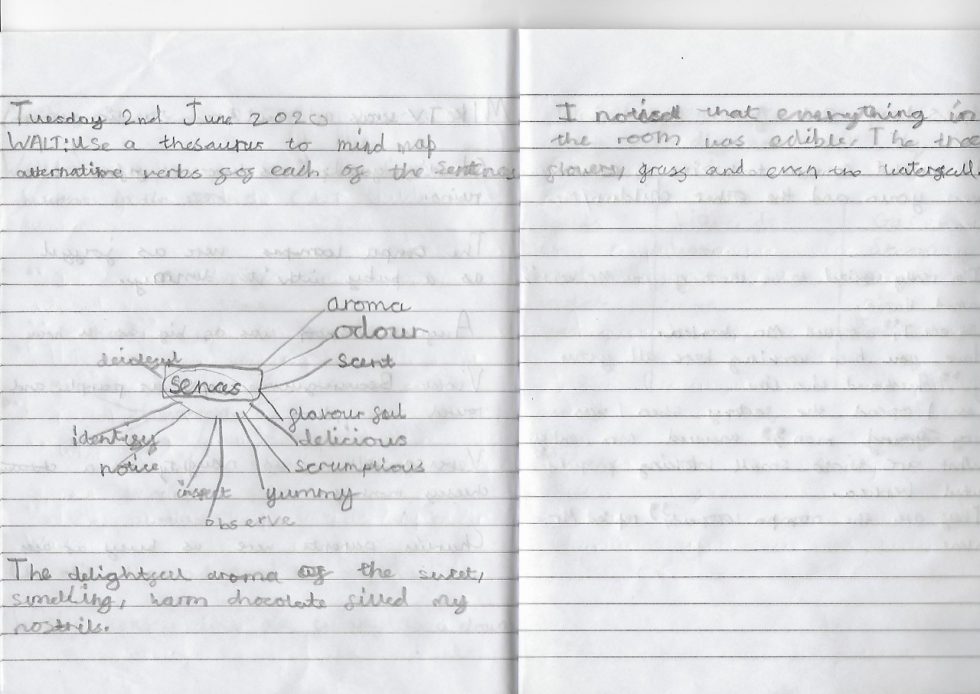 Tuesday 2nd June 2020
WALT: Use a thesaurus to mind map
alternative verbs for each of the
aroma
odour
scent
sences
flavour foul
identify
delicious
notice
scrumptious
inspect
yummy
observe
The delightful aroma of the sweet,
smelling, warm chocolate filled my
nostrils.
I noticed that everything in
the room was edible. The tree
flowers, grass and even the waterfall.